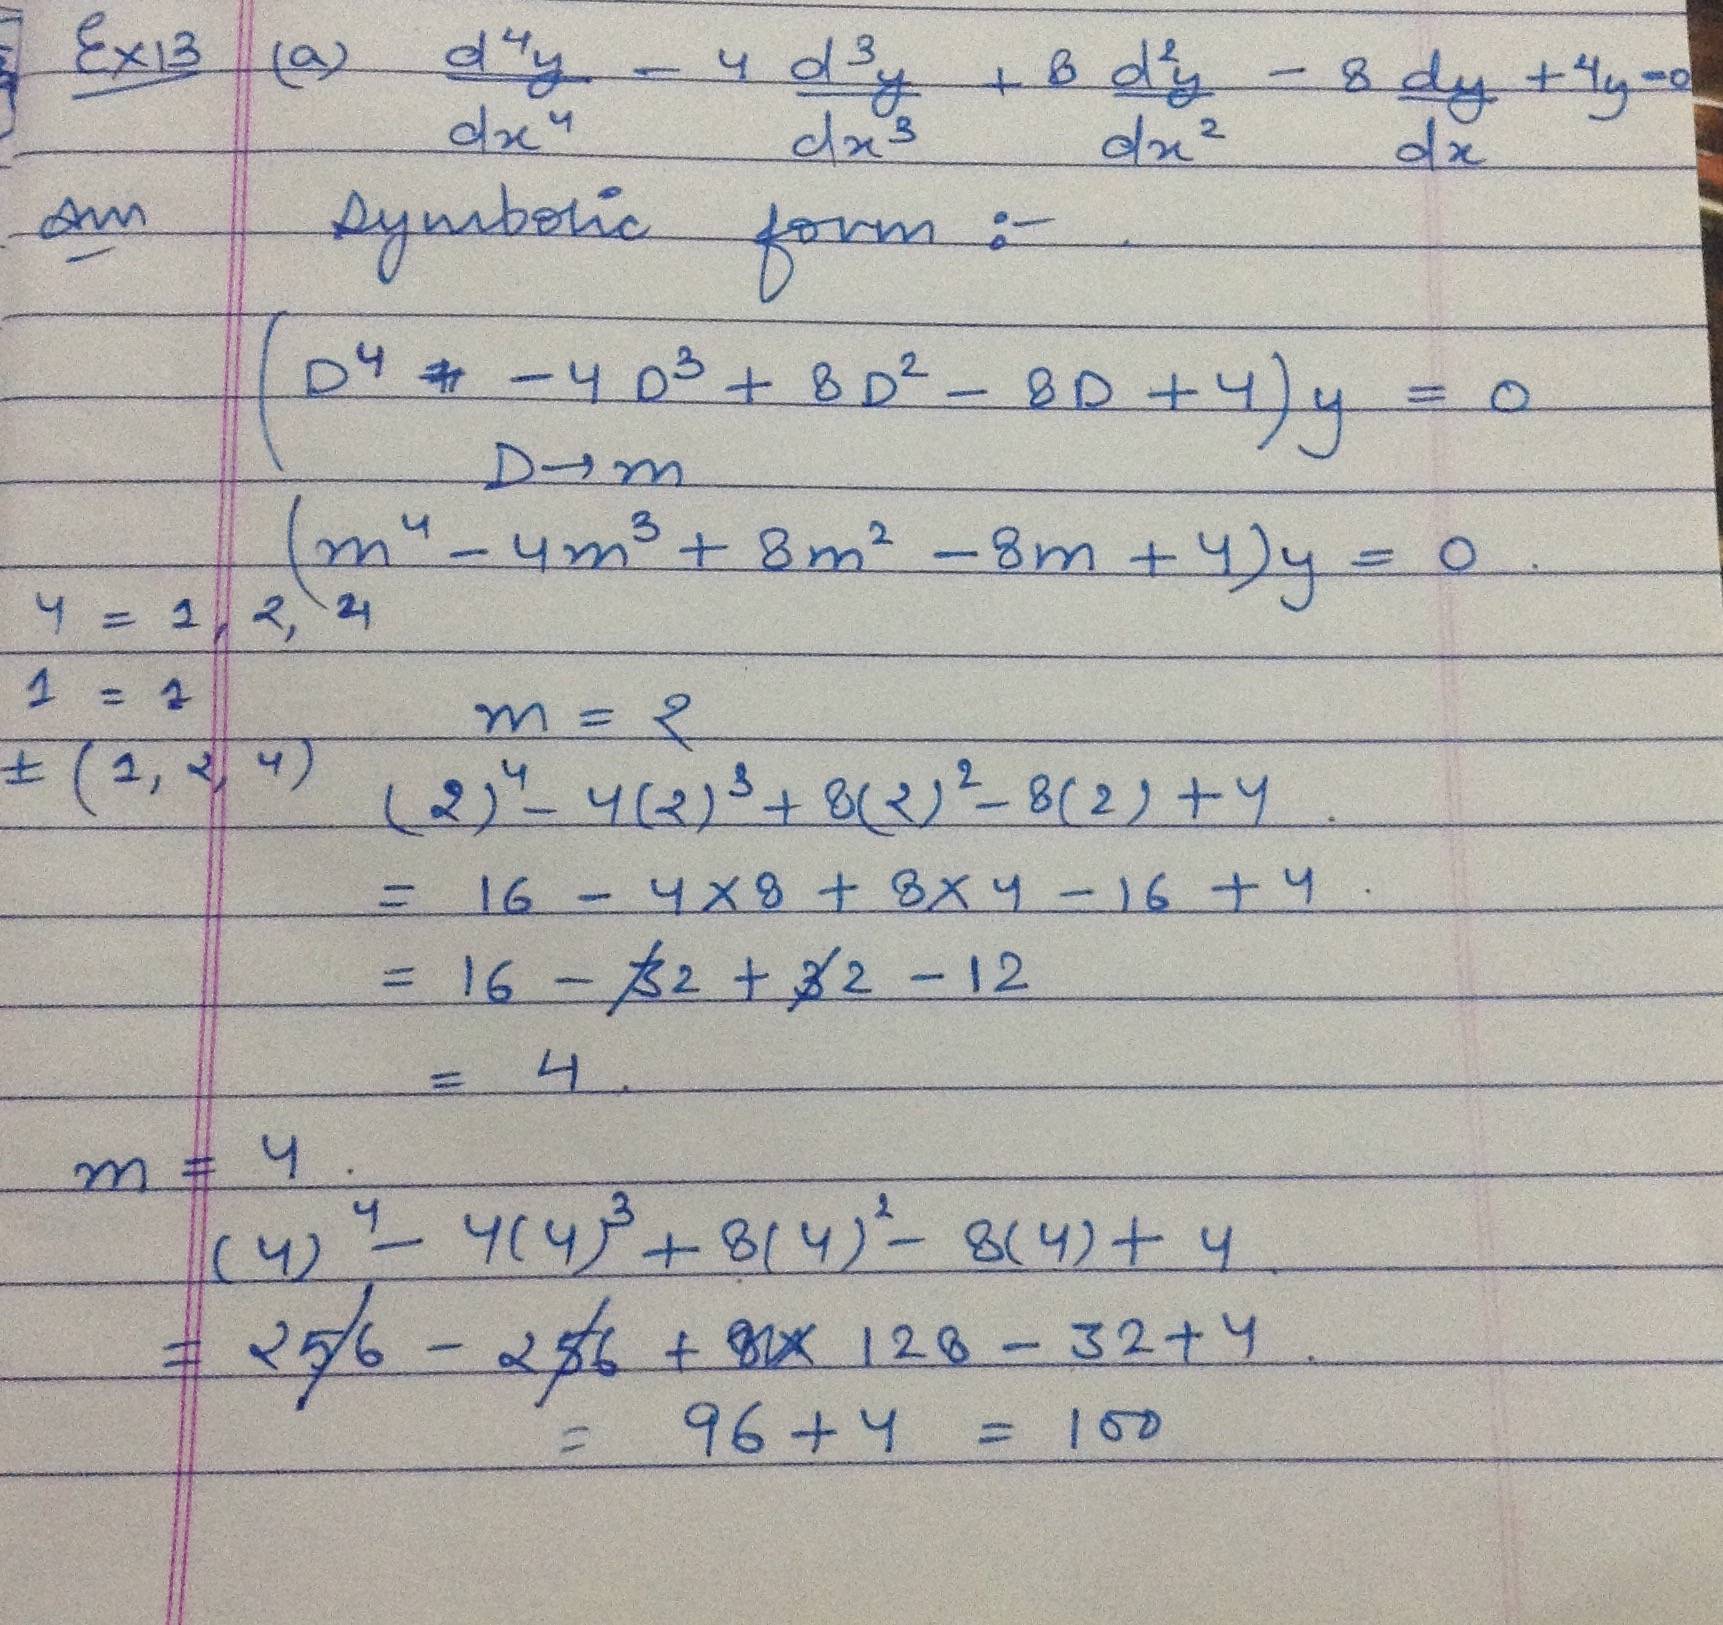 Ex13 (a) d⁴y/dx⁴ - 4 d³y/dx³ + 8 d²y/dx² - 8 dy/dx + 4y = 0
Ans Symbolic form :-
(D⁴ - 4D³ + 8D² - 8D + 4)y = 0
D→m
(m⁴ - 4m³ + 8m² - 8m + 4)y = 0
4 = 1, 2, 4
1 = 1
m = 2
± (1, 2, 4)
(2)⁴ - 4(2)³ + 8(2)² - 8(2) + 4
= 16 - 4×8 + 8×4 - 16 + 4
= 16 - 32 + 32 - 12
= 4
m = 4
(4)⁴ - 4(4)³ + 8(4)² - 8(4) + 4
= 256 - 256 + 128 - 32 + 4
= 96 + 4 = 100